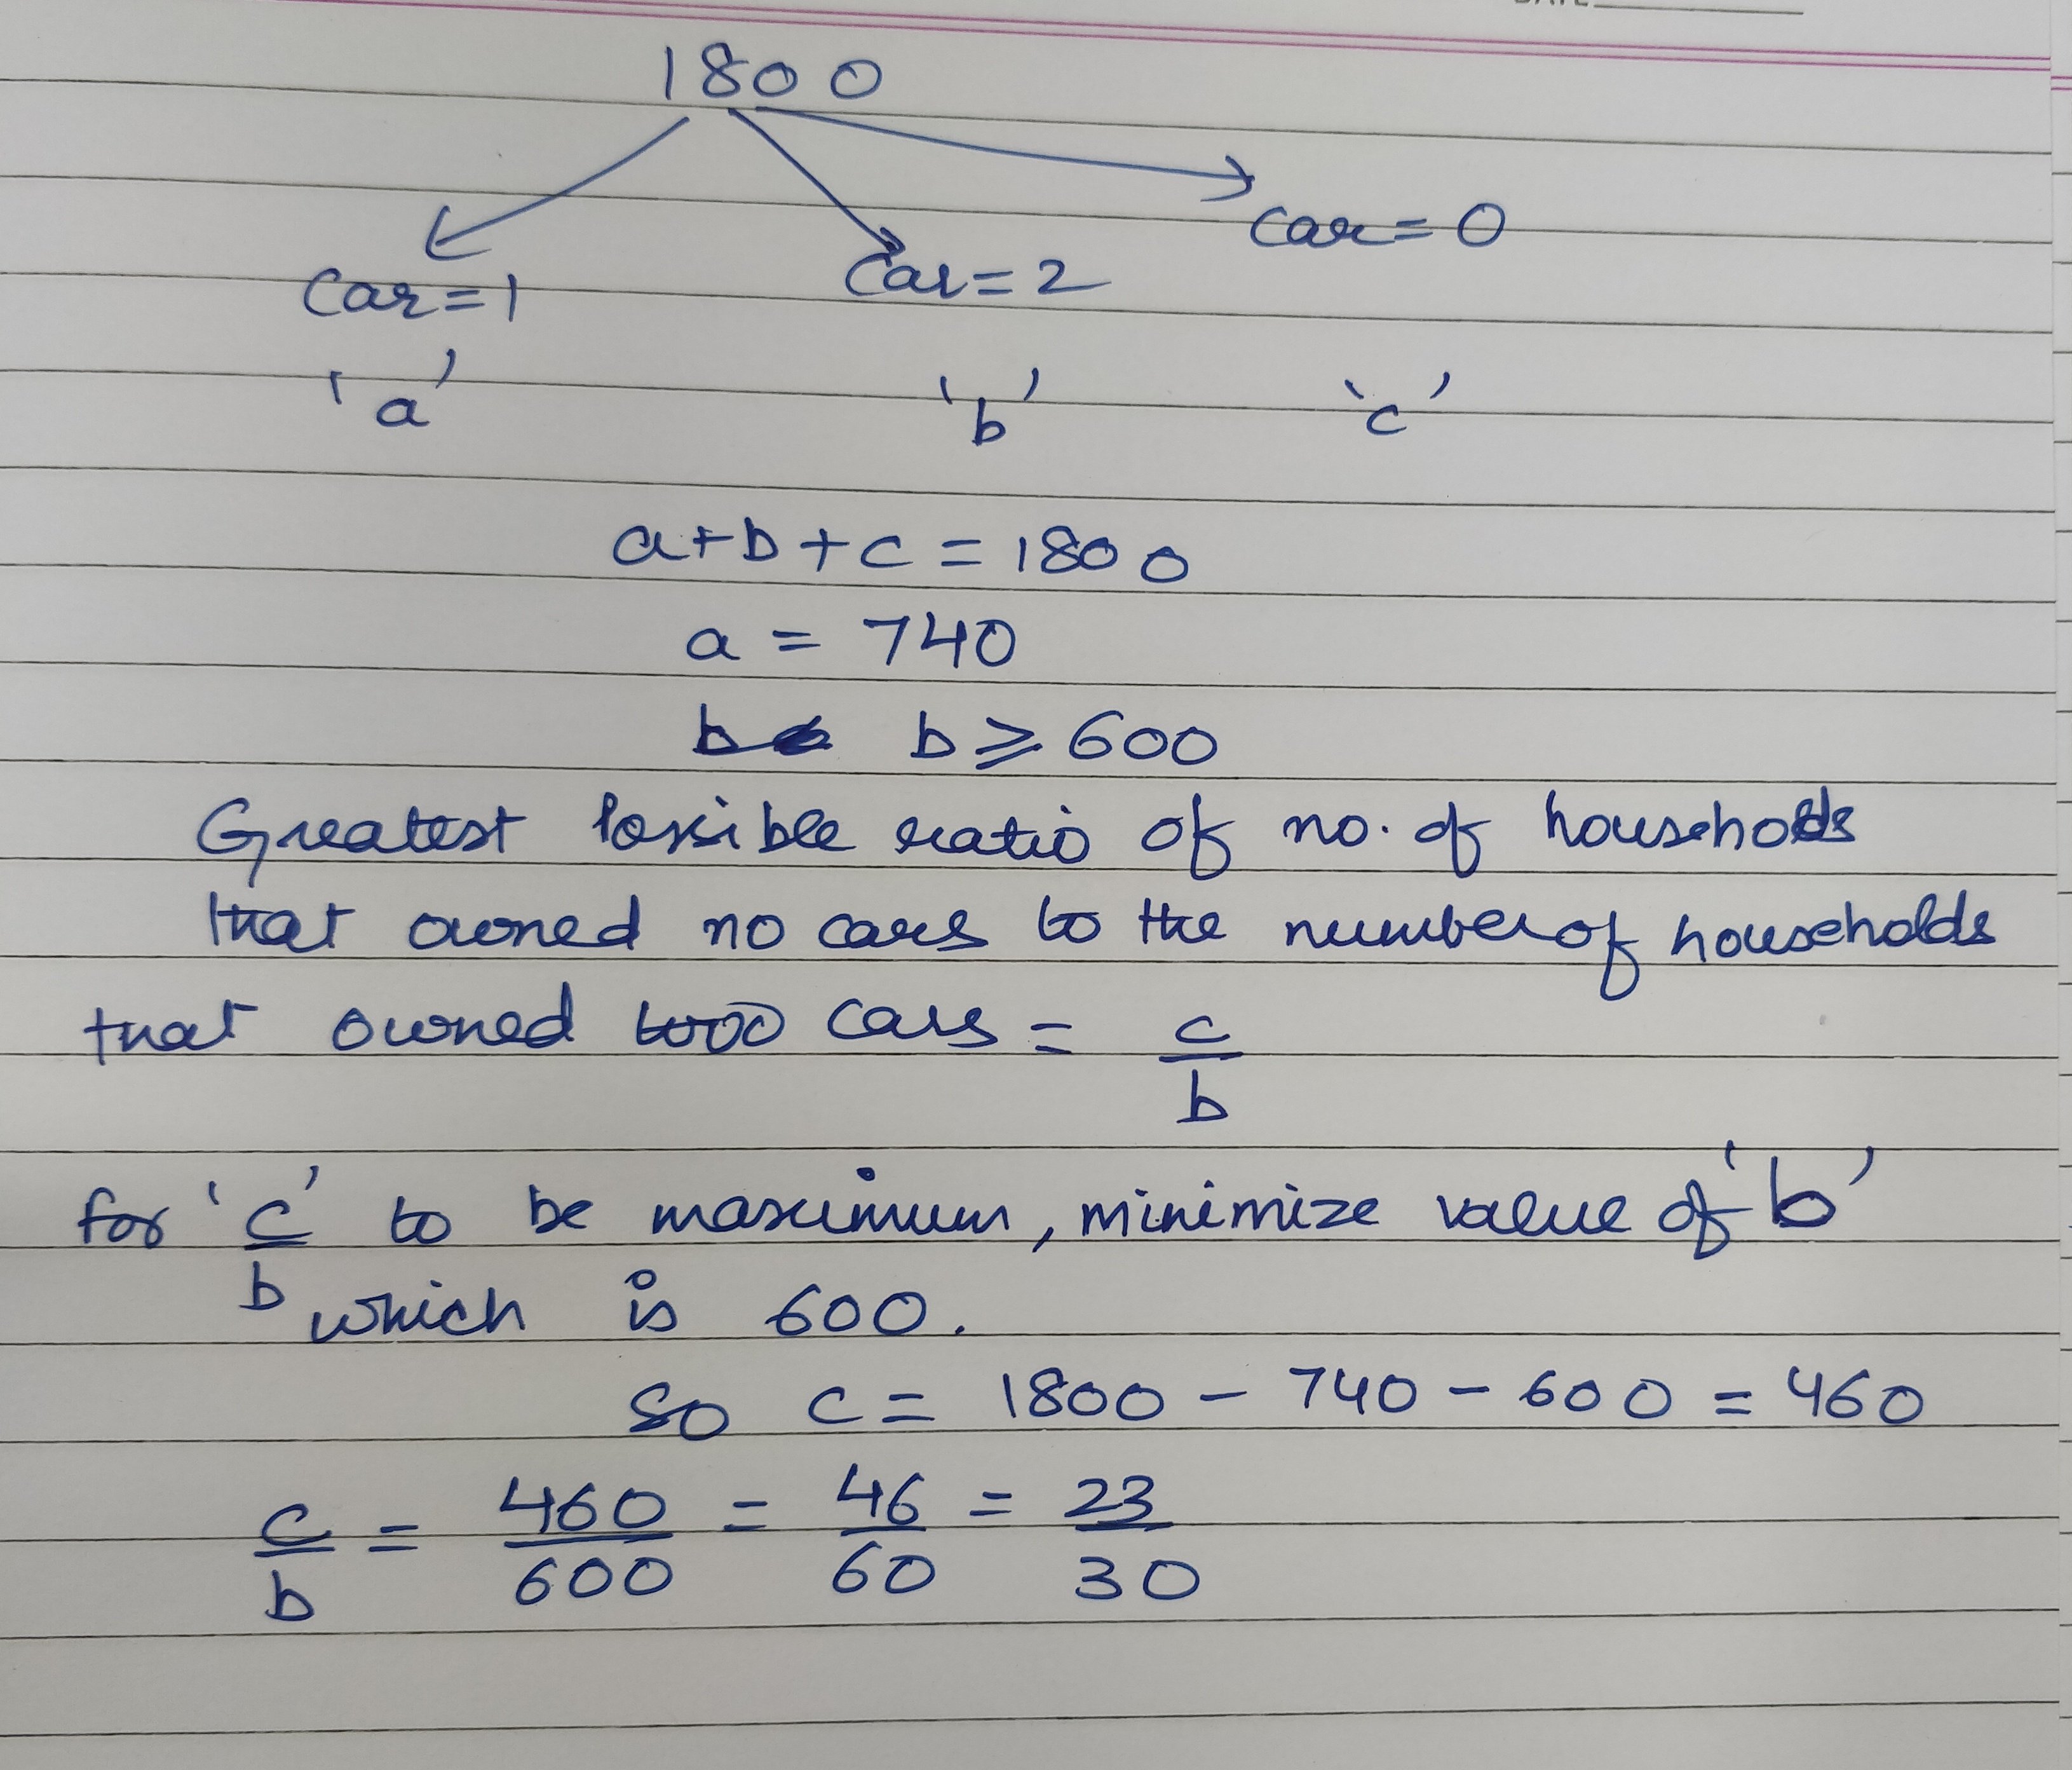 1800
car=0
Car=1
Car=2
'a' 'b' 'c'
a+b+c = 1800
a = 740
b ≥ 600
Greatest Possible ratio of no. of households
that owned no cars to the number of households
that owned two cars = c/b
for 'c/b' to be maximum, minimize value of 'b'
which is 600.
So c = 1800 - 740 - 600 = 460
c/b = 460/600 = 46/60 = 23/30